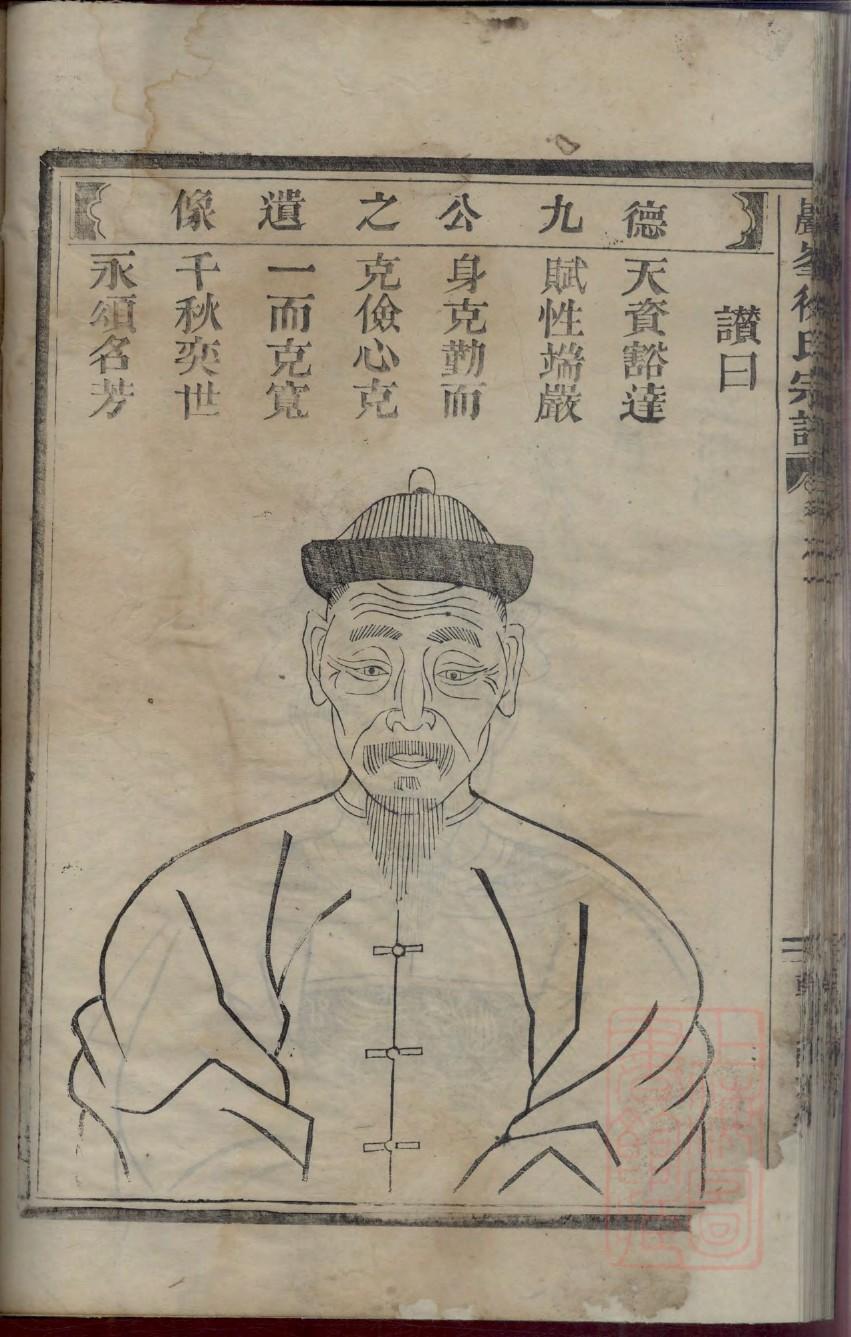 德九公之遺像
讃曰
天資豁達
賦性端嚴
身克勤而
克儉心克
一而克寬
千秋奕世
永頌名芳